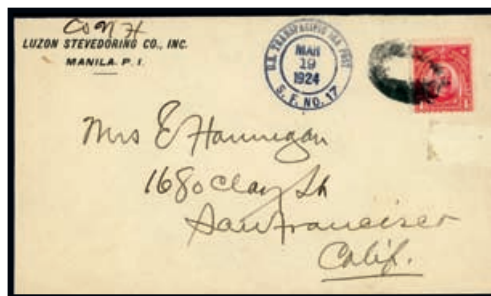 LUZON STEVEDORING CO., INC.
MANILA. P. I.
U.S. TRANSPACIFIC SEA POST
MAR
19
1924
S. F. NO. 17
Mrs E Hannegan
1680 Clay St
San Francisco
Calif.